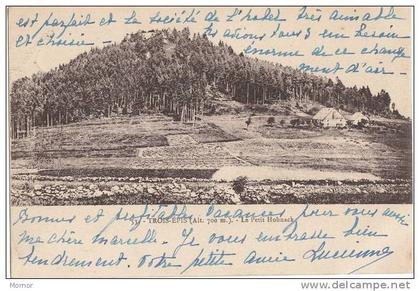 est parfait et la société de l'hotel très aimable
et choisie — Nous avions tous 3 un besoin
énorme de ce change
ment d'air —
TROIS-ÉPIS (Alt. 700 m.). - Le Petit Hohnack
Bonnes et profitables vacances pour vous aussi
ma chère Marcelle. Je vous embrasse bien
tendrement. Votre petite amie Lucienne